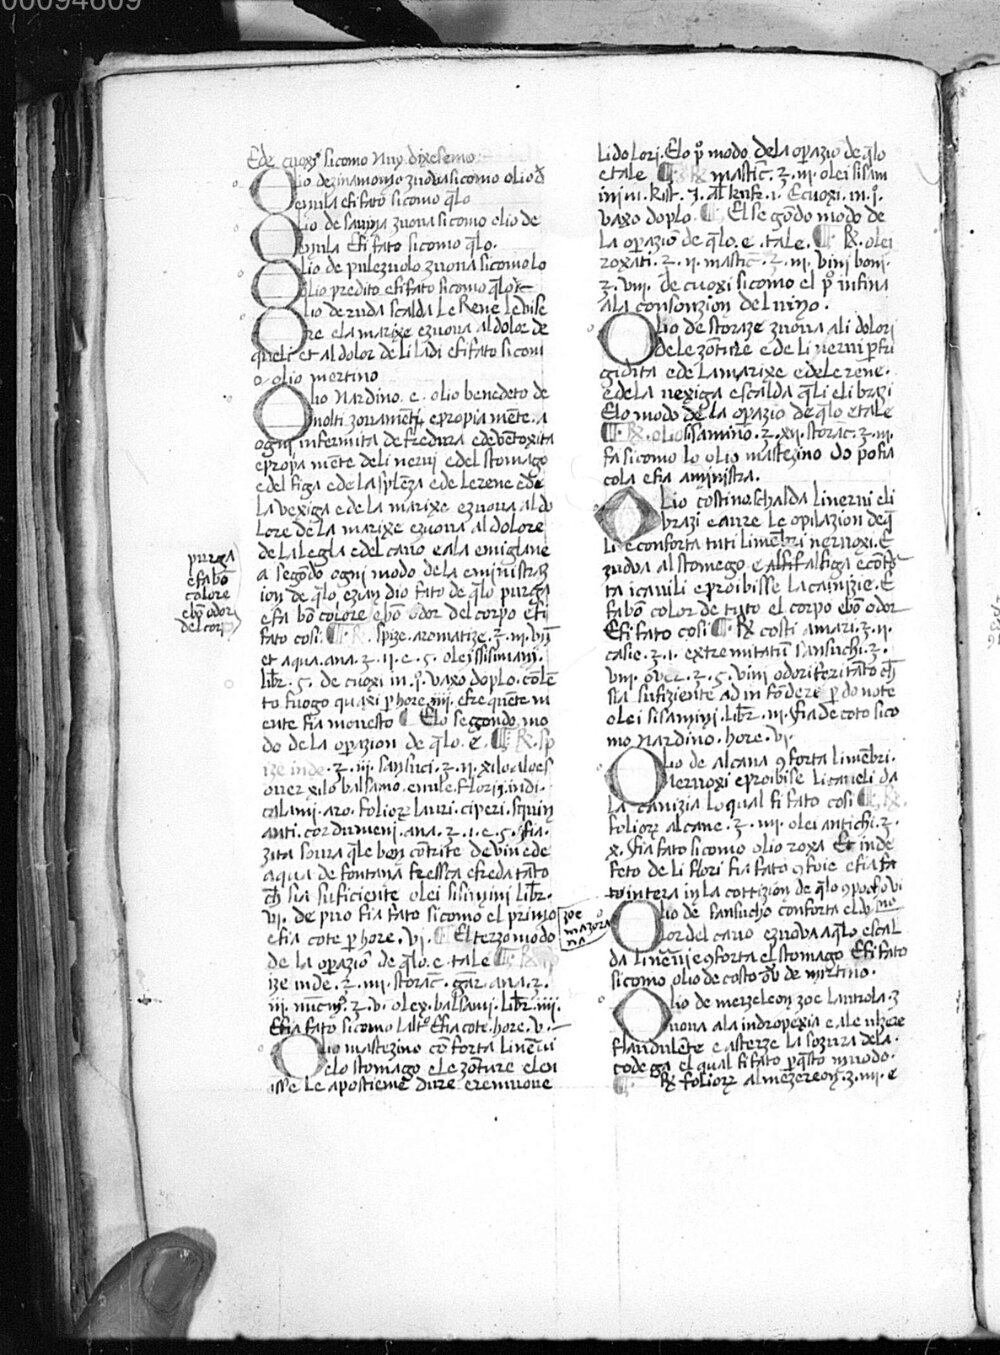 00094609
Ede cuoxi sicomo nuy dixesemo
Olio de zinamomo zuova sicomo olio d̄
emila e fi fato sicomo q̄lo
Olio de savina zuova sicomo olio de
e fi fato sicomo q̄lo.
Olio de pulezuolo zuova sicomo lo
olio predito e fi fato sicomo q̄lo
Olio de ruda scalda le Rene le
re e la marixe ezuova al dolor de
queli et al dolor de li ladi e fi fato sicom
o olio mertino
Olio Nardino. e. olio benedeto de
molti zovamenti e propia mēte. a
ogni infermita de fredura e de
e propia mēte de li nervi e del stomago
e del figa e de la splēza e de le rene e de
la vexiga e de la marixe ezuova al do
lore de la marixe ezuova al dolore
de la e del cavo e ala emigrane
a segōdo ogni modo de la aministraz
ion de q̄lo ezian dio fato de q̄lo purga
e fa bō colore e bō odor del corpo e fi
fato cosi ¶. ℞. spize. aromatize. ʒ. iij.
et aqua. ana. ʒ. ii. e. s. olei sisimini.
libr̄. 5. de cuoxi in. i̊. vaxo doplo. cō lē
to fuogo quaxi p̄ hore. iiij. e frequente m
ente fia movesto ¶ Elo segondo mo
do de la op̄azion de q̄lo. e. ¶ ℞. sp
ize inde. ʒ. iii. sansuci. ʒ. ii. xilo aloes
over xilo balsamo. enule. florij. indi.
calami. aro. folioꝝ lauri. ciperi. squin
anti. cordumeni. ana. ʒ. i. e. s. fia.
zita soura q̄le ben cōtrite de vin e de
aqua de fontana fressca e freda tāto
ch̄ sia suficiente olei sisimini libr̄.
vj. de puo fia fato sicomo el primo
e fia cote p̄ hore. vi. ¶ El terzo modo
de la op̄azio de q̄lo. e. tale ¶ ℞ sp
ize inde. ʒ. iii. storac̄. gar̄. ana. ʒ.
iij. ʒ. v. olei. balsami. libr̄. iiij.
E fia fato sicomo l alt̊ E fia cote. hore. v.
Olio mastezino cō forta li nēvi
e lo stomago e le zōture e leu
isse le apostieme dure e remuove
purga
e fa bō
colore
e bō odor
del corp
li dolori. Elo p̊ modo de la op̄azio de q̄lo
e tale ¶ ℞ mastic̄. ʒ. iij. olei sisam
inini. E cuoxi. in. i̊.
vaxo doplo. ¶. El segōdo modo de
la op̄azio de q̄lo. e. tale. ¶ ℞. olei
roxati. ʒ. ii. mastic̄. ʒ. iij. vini boni.
ʒ. viij. de cuoxi sicomo el p̊ infina
ala consonzion del vino.
Olio de storaze zuova ali dolori
de le zōture e de li nervi
gidita e de la marixe e de le rene.
e de la vexiga e scalda q̄li e li brazi
Elo modo de la op̄azio de q̄lo e tale
¶. ℞. olio sisamino. ʒ. xii. storac̄. ʒ. iij.
fa sicomo lo olio mastezino do posia
cola e fia aministra.
Olio costino schalda li nervi e li
brazi e avre le opilazion de q̄
li e conforta tuti li mēbri nervoxi. E
zuova al stomego e al figa e cōfor
ta i cavili e proibisse la canizie. E
fa bō color de tuto el corpo e bō odor
E fi fato cosi ¶. ℞ costi amari. ʒ. ii.
casie. ʒ. i. extremitatū sansuchi. ʒ.
viij. over. ʒ. 5. vini odoriferi tāto ch̄
sia sufiziente ad in fōdere p̄ do note
olei sisamini. libr̄. iij. fia de coto sico
mo nardino. hore. vi.
Olio de alcana 9forta li mēbri.
nervoxi e proibise li caveli da
la canizia lo qual fi fato cosi ¶ ℞.
folioꝝ alcane. ʒ. iij. olei antichi. ʒ.
x. fia fato sicomo olio roxa Et inde
feto de li flori fia fato 9 foie e fia fa
to intera in la cottizion de q̄lo
Olio de sansucho conforta el do
lor del cavo ezuova a q̄lo e scal
da li nēvi e 9forta el stomago E fi fato
sicomo olio de costo ōv de mirtino.
zoe
mazora
na
Olio de mezeleon zoe lauriola. z
uova ala indropexia e ale ulzere
flaudulēte e asterze la sozura de la.
codega el qual fi fato p̄ q̄sto muodo.
¶. ℞ folioꝝ almezereon. ʒ. iij. e